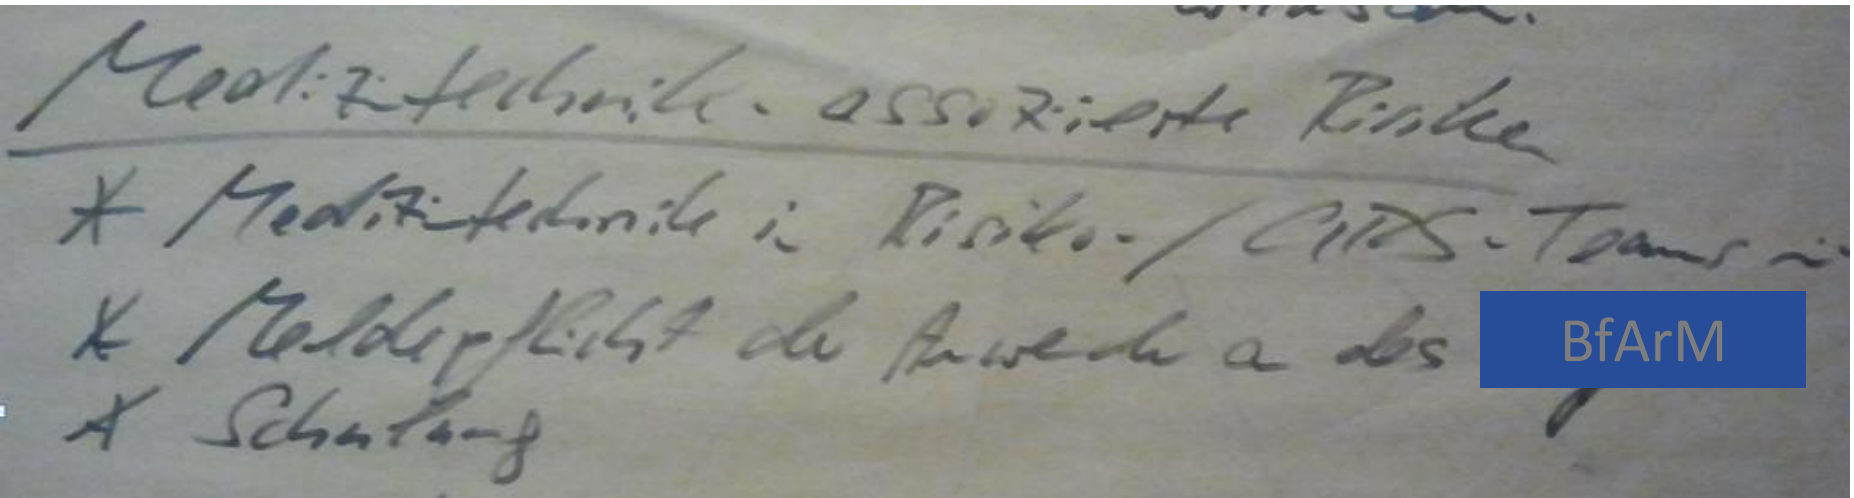 Medizintechnik-assoziierte Risiken
* Medizintechnik in Risiko-/CIRS-Teams
* Meldepflicht der Anwender an das BfArM
* Schulung